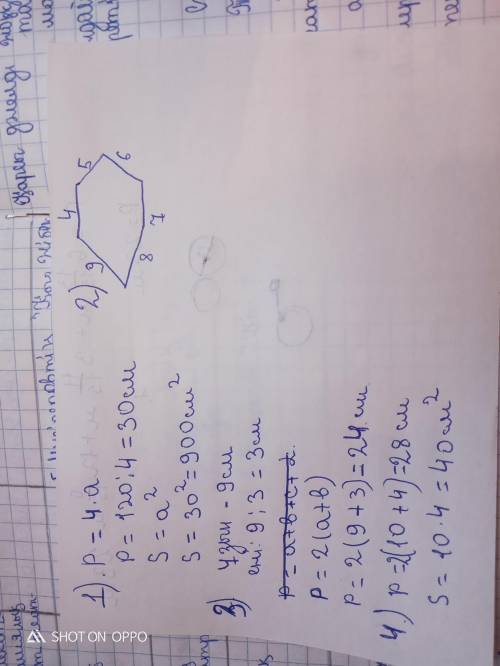 1) P = 4·a
P = 120:4 = 30см
S = a²
S = 30² = 900см²
2)
4 5
6
7
8
9
3) Ұзын - 9см
ені: 9:3 = 3см
P = a+b+c+d
P = 2(a+b)
P = 2(9+3) = 24 см
4.) P = 2(10+4) = 28 см
S = 10·4 = 40см²
SHOT ON OPPO